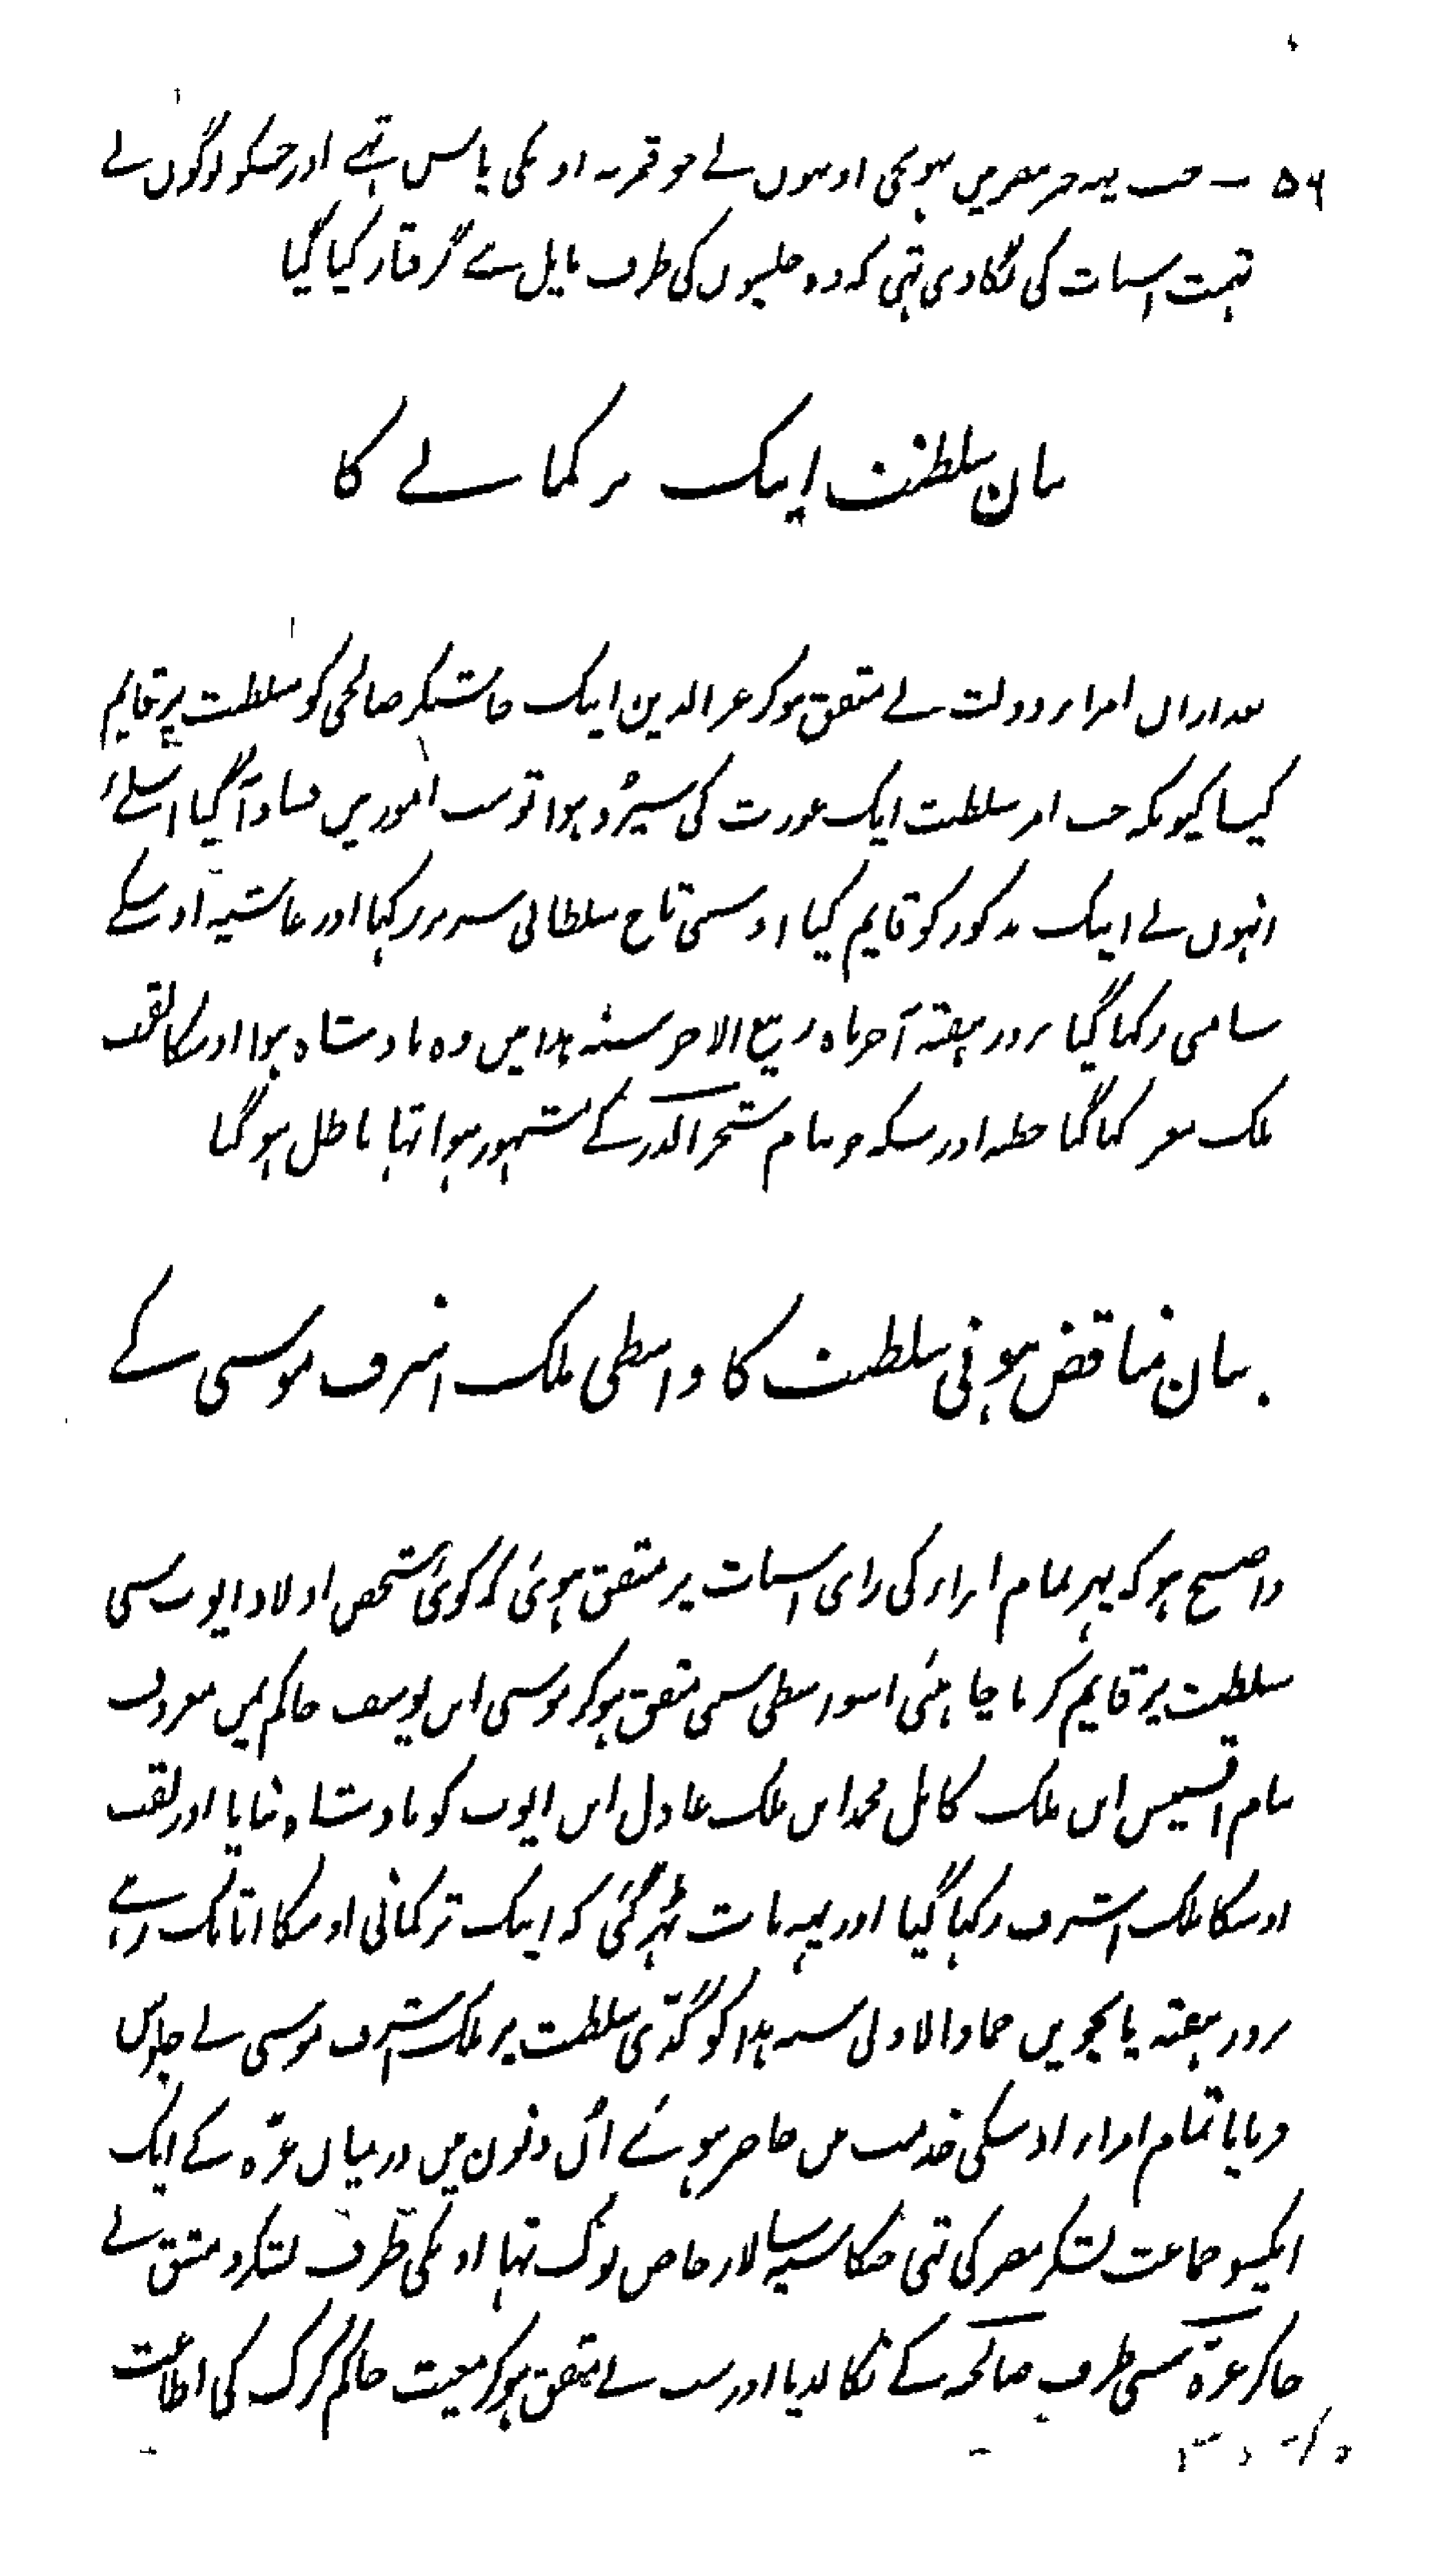 ۵۶ - جب یہہ خبر مصر میں پہونچی اونہوں نے جو قمریہ اونکی پاس تہے اور جسکو لوگوں نے
تہمت اسبات کی لگادی تہی کہ وہ حلبیوں کی طرف مایل ہے گرفتار کیا گیا
بیان سلطنت ایبک ترکمانے کا
بعد ازاں امراء دولت نے متفق ہوکر عزالدین ایبک جاشنگیر صالحی کو سلطنت پر قایم
کیا کیونکہ جب امر سلطنت ایک عورت کی سپرد ہوا تو سب امور میں فساد آگیا اسلئے
انہوں نے ایبک مذکور کو قایم کیا اوسی تاج سلطانی سر پر رکہا اور غاشیہ اوسکے
سامنی رکہا گیا بروز ہفتہ آخر ماہ ربیع الاخر سنہ ہذا میں وہ بادشاہ ہوا اوسکا لقب
ملک معز کہا گیا خطبہ اور سکہ جو بنام شجر الدر کے مشہور ہوا تہا باطل ہوگیا
بیان مناقض ہونی سلطنت کا واسطی ملک اشرف موسی کے
واضح ہو کہ پہر تمام امراء کی رای اسبات پر متفق ہوئی کہ کوئی شخص اولاد ایوب سی
سلطنت پر قایم کرنا چاہئی اسواسطی سبھی متفق ہوکر موسی ابن یوسف حاکم یمن معروف
بنام اقسیس ابن ملک کامل محمد ابن ملک عادل ابن ایوب کو بادشاہ بنایا اور لقب
اوسکا ملک اشرف رکہا گیا اور یہہ بات ٹہر گئی کہ ایبک ترکمانی اوسکا اتابک رہے
بروز ہفتہ پانچویں جمادالاولی سنہ ہذا کو گدی سلطنت پر ملک اشرف موسی نے جلوس
فرمایا تمام امراء اوسکی خدمت میں حاضر ہوئے اُن دنوں میں درمیان غزہ کے ایک
جماعت لشکر مصر کی تہی جنکا سپہ سالار خاص ترک تہا اونکی طرف لشکر دمشق نے
جاکر غزہ سی طرف صالحیہ کے نکالدیا اور سب نے متفق ہوکر حاکم کرک کی اطاعت